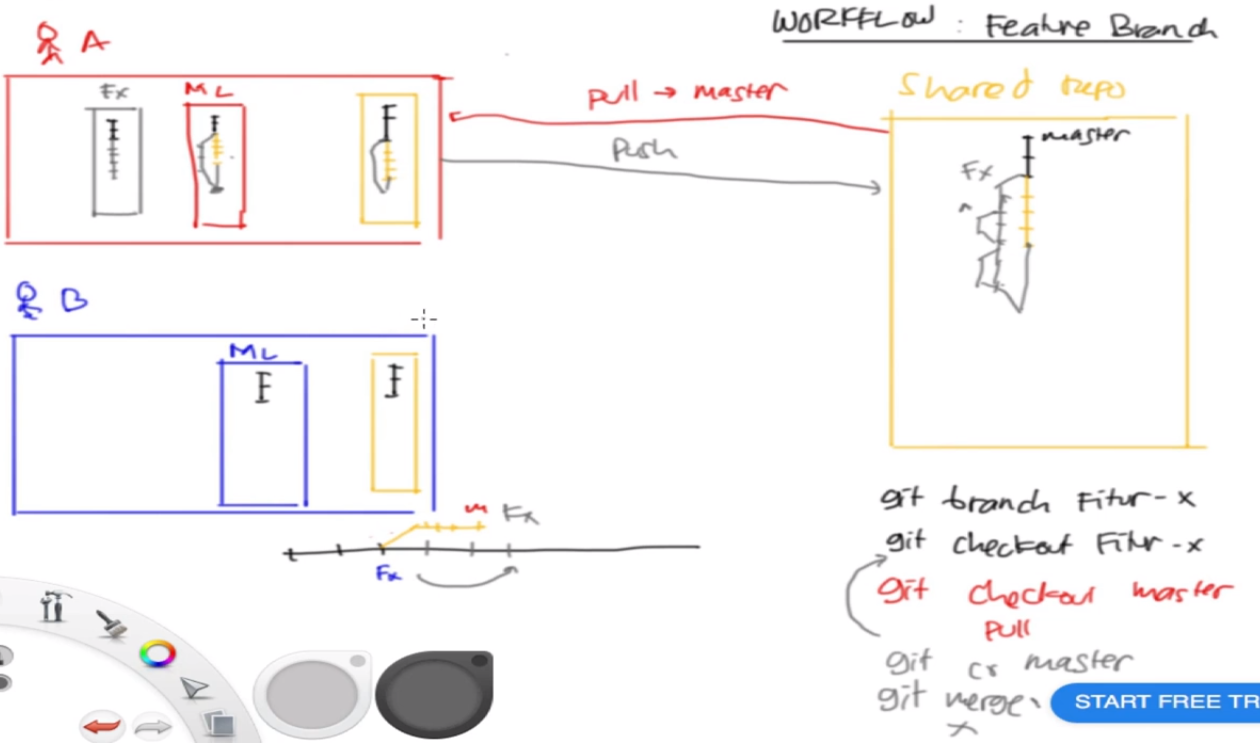 WORKFLOW : Feature Branch
A
Fx
ML
Pull → master
Push
Shared Repo
master
Fx
B
ML
m
Fx
Fx
git branch Fitur-x
git checkout Fitur-x
git checkout master
pull
git master
git merge
x
START FREE TR